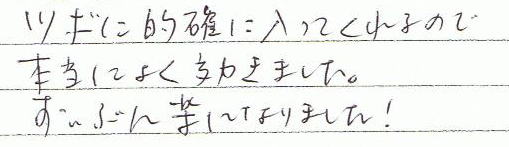 ツボに的確に入ってくれるので
本当によく効きました。
ずいぶん楽になりました!